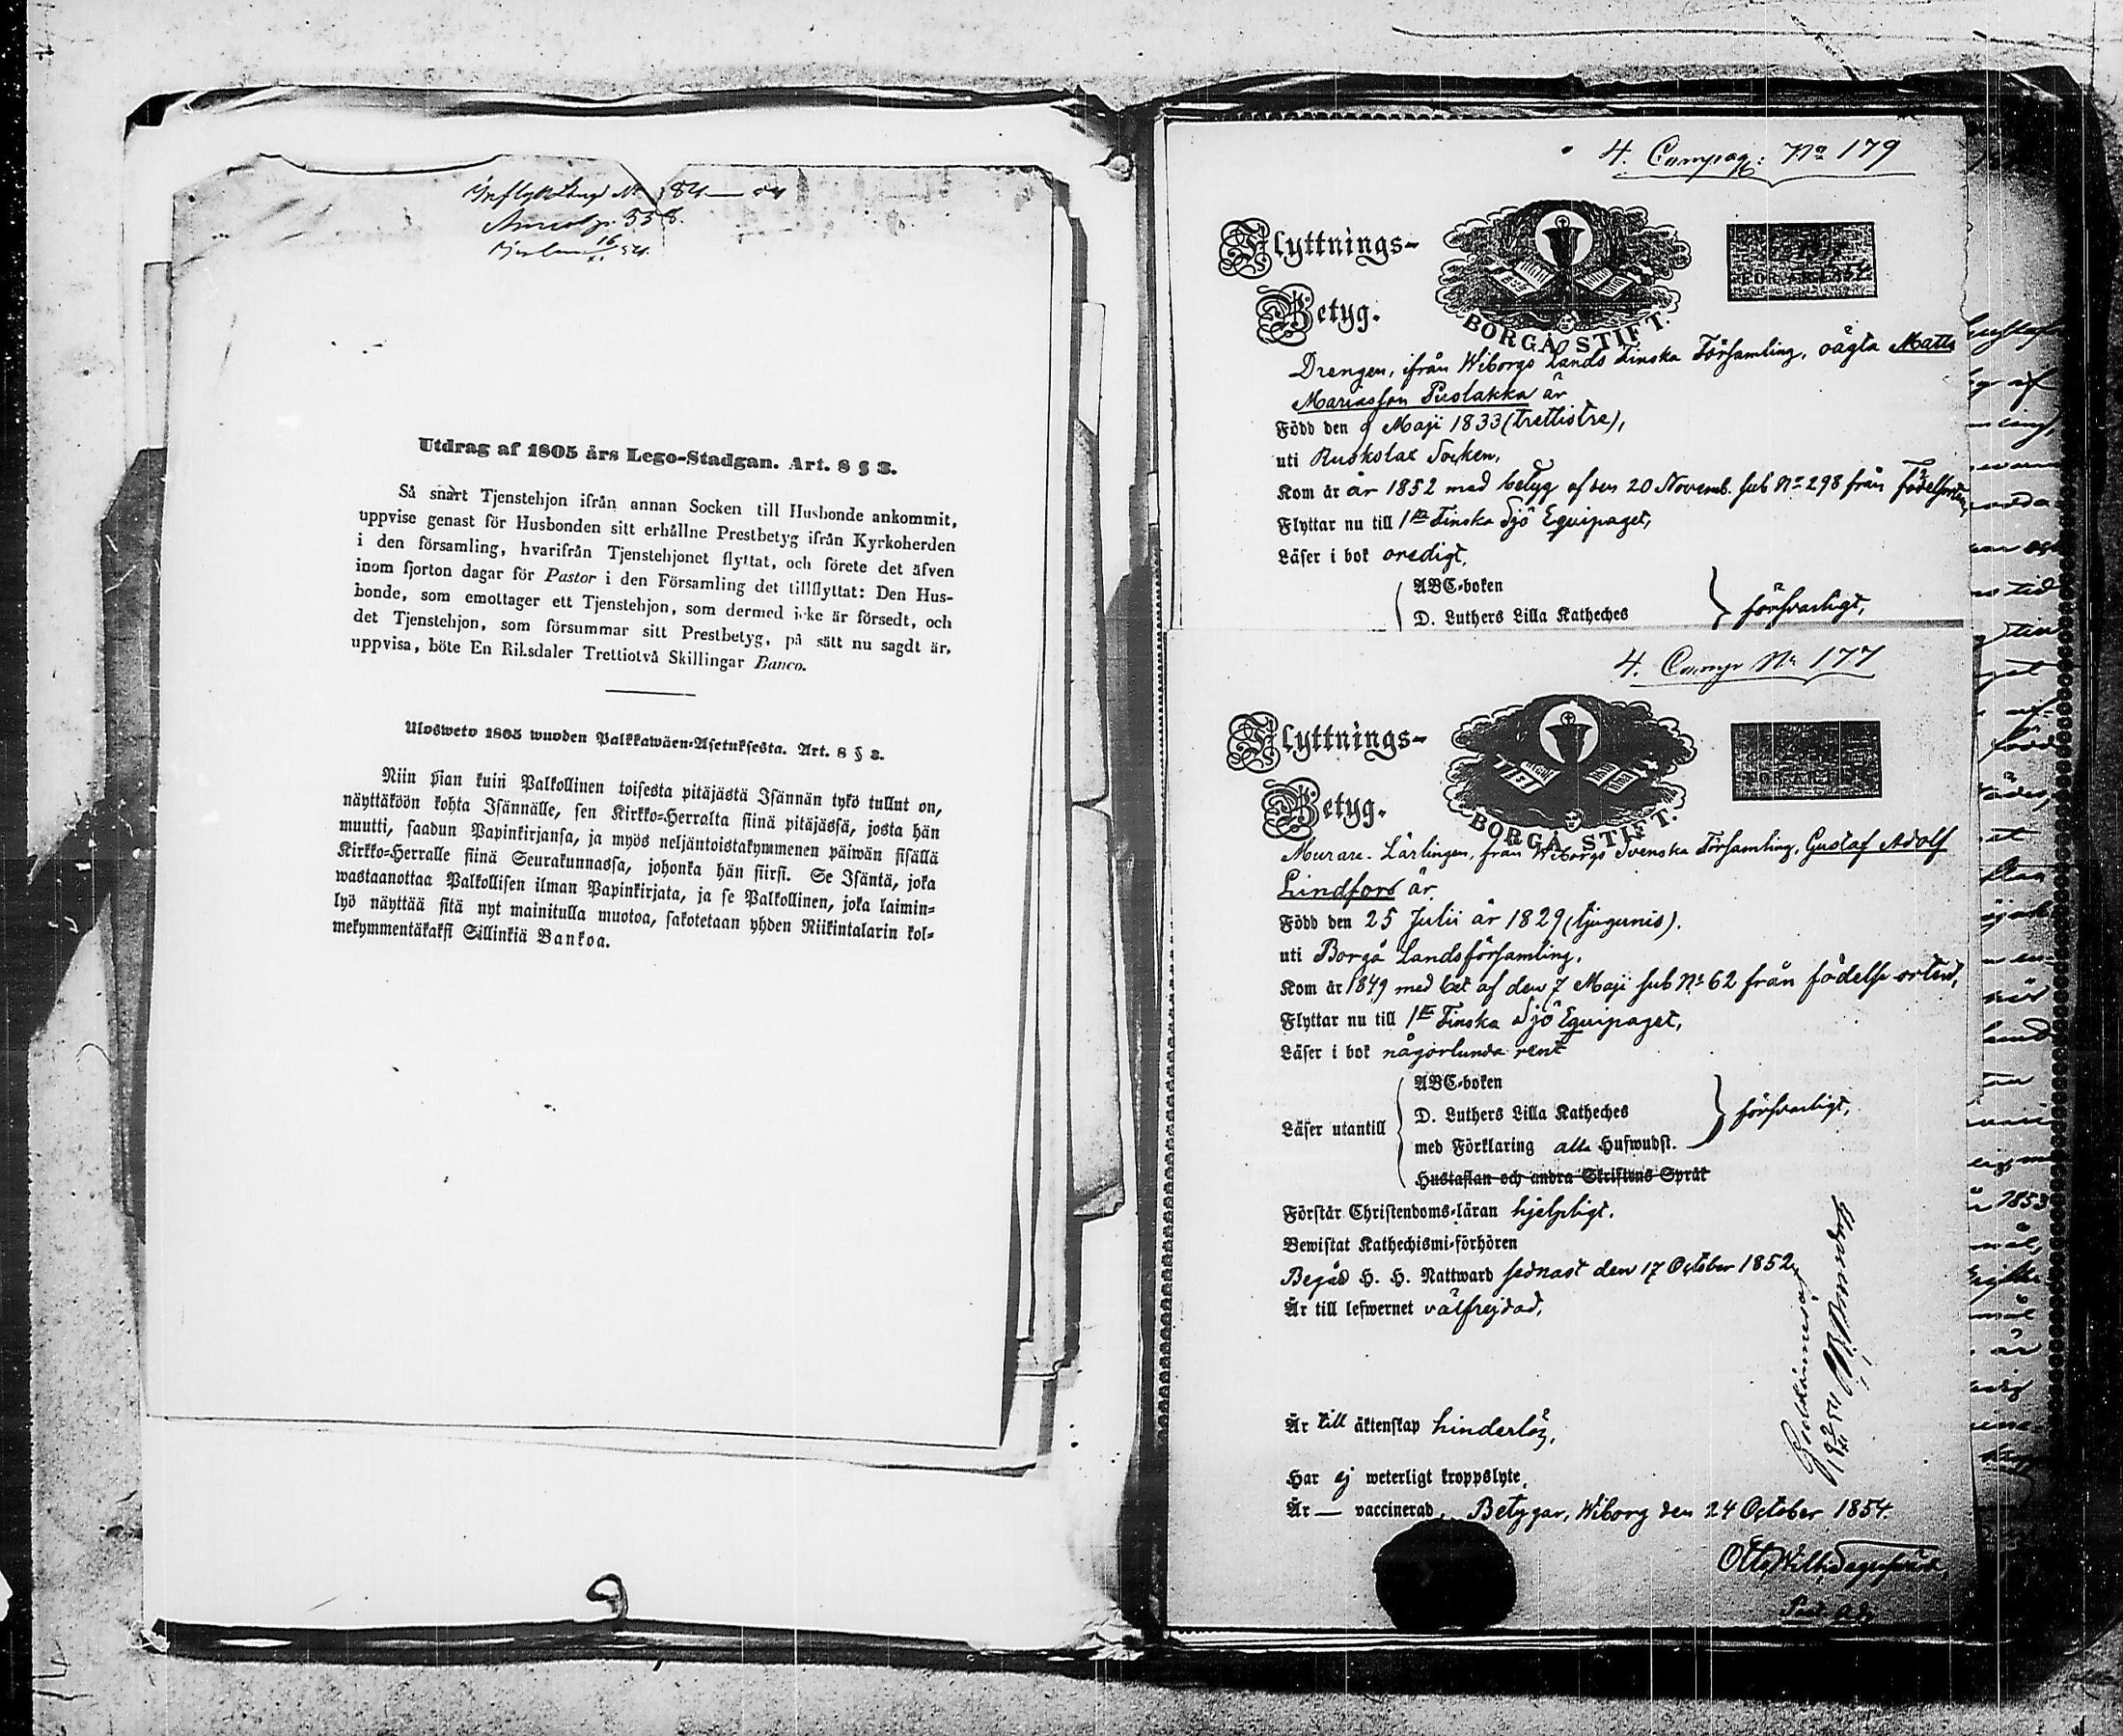 84
558.
16
54.
Utdrag af 1805 års Lego-Stadgan. Art. 8 § 3.
Så snart Tjenstehjon ifrån annan Socken till Husbonde ankommit,
uppvise genast för Husbonden sitt erhållne Prestbetyg ifrån Kyrkoherden
i den församling, hvarifrån Tjenstehjonet flyttat, och förete det äfven
inom fjorton dagar för Pastor i den Församling det tillflyttat: Den Hus-
bonde, som emottager ett Tjenstehjon, som dermed icke är försedt, och
det Tjenstehjon, som försummar sitt Prestbetyg, på sätt nu sagdt är,
uppvisa, böte En Riksdaler Trettiotvå Skillingar Banco.
Ulosweto 1805 wuoden Palkkawäen-Asetuksesta. Art. 8 § 3.
Niin pian kuin Palkollinen toisesta pitäjästä Isännän tykö tullut on,
näyttäköön kohta Isännälle, sen Kirkko-Herralta siinä pitäjässä, josta hän
muutti, saadun Papinkirjansa, ja myös neljäntoistakymmenen päiwän sisällä
Kirkko-Herralle siinä Seurakunnassa, johonka hän siirsi. Se Isäntä, joka
wastaanottaa Palkollisen ilman Papinkirjata, ja se Palkollinen, joka laimin-
lyö näyttää sitä nyt mainitulla muotoa, sakotetaan yhden Riikintalarin kol-
mekymmentäkaksi Sillinkiä Bankoa.
4. Compag: No 179
Flyttnings-
Betyg.
BORGÅ STIFT.
Drengen, ifrån Wiborgs Lands Finska Församling, oägta Matts
Mariasson Puolakka är
Född den 9 Maji 1833 (trettiotre),
uti Ruokolax Socken,
Kom år år 1852 med betyg af den 20 Novemb. sub No 298 från födelseorten,
Flyttar nu till 1sta Finska Sjö Equipaget,
Läser i bok oredigt,
ABC-boken
D. Luthers Lilla Katheches
försvarligt,
4. Comp No 177
Flyttnings-
Betyg.
BORGÅ STIFT.
Murare-Lärlingen, från Wiborgs Svenska Församling, Gustaf Adolf
Lindfors är
Född den 25 Julii år 1829 (tjugunio).
uti Borgå Landsförsamling,
Kom år 1849 med bet af den 7 Maji sub No 62 från födelse orten,
Flyttar nu till 1sta Finska Sjö Equipaget,
Läser i bok någorlunda rent
Läser utantill
ABC-boken
D. Luthers Lilla Katheches
med Förklaring alla Hufwudst.
Hustaflan och andra Skriftens Språk
försvarligt,
Förstår Christendoms-läran hjelpligt.
Bewistat Kathechismi-förhören
Begås H. H. Nattward sednast den 17 October 1852,
Är till lefwernet välfrejdad,
Är till äktenskap hinderlös,
Har ej weterligt kroppslyte,
Är — vaccinerad, Betygar, Wiborg den 24 October 1854.
Otto Wilh.